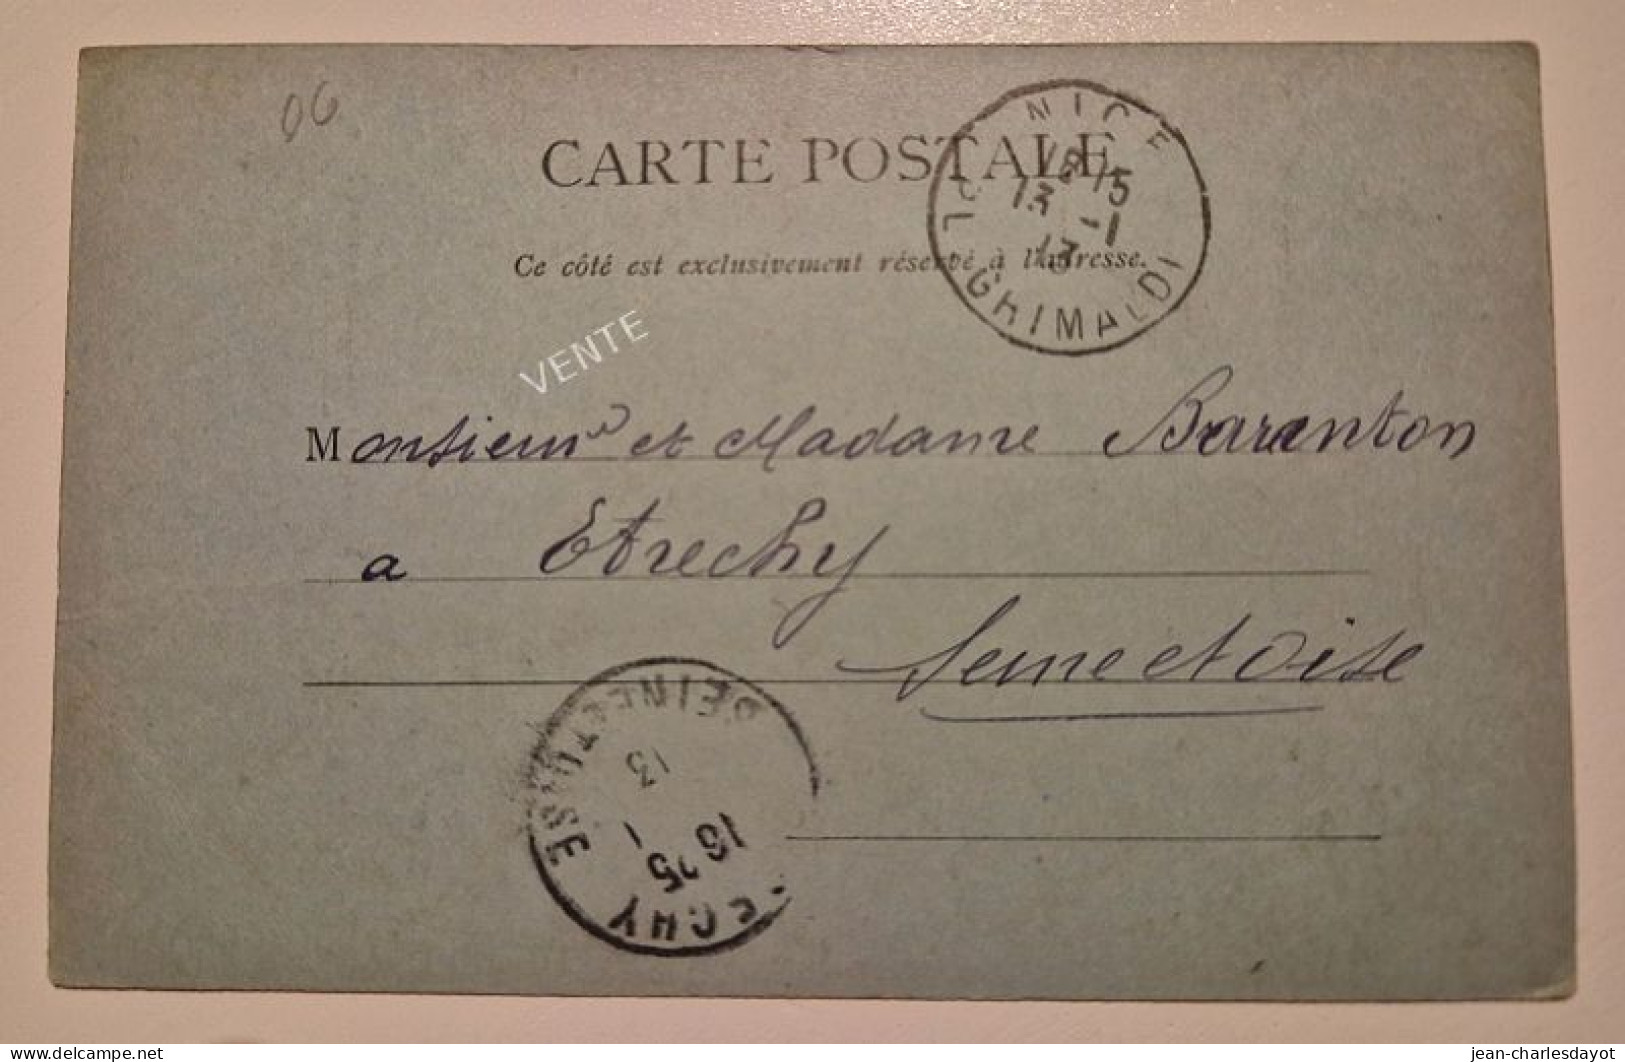 06
CARTE POSTALE
Ce côté est exclusivement réservé à l'adresse.
NICE
18 15
13 -1
13
GRIMALDI
VENTE
Monsieur et Madame Baranton
a Etrechy
Seine et Oise
SEINE-ET-OISE
13
1
16 25
ECHY
delcampe.net
jean-charlesdayot